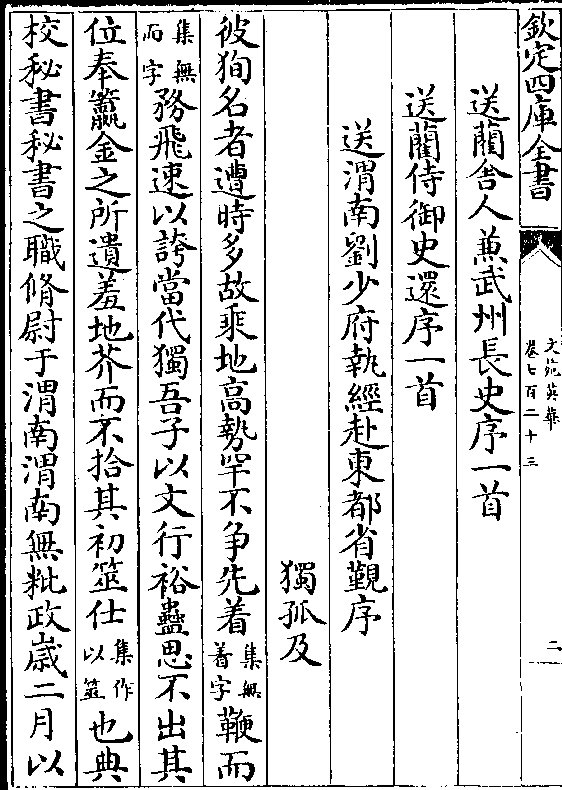 欽定四庫全書
文苑英華
卷七百二十三
二
送藺舍人兼武州長史序一首
送藺侍御史還序一首
送渭南劉少府執經赴東都省覲序
獨孤及
彼狥名者遭時多故乘地高勢罕不争先着集無着字鞭而
集無而字務飛速以誇當代獨吾子以文行裕蠱思不出其
位奉籯金之所遺羞地芥而不拾其初筮仕集作以筮也典
校秘書秘書之職脩尉于渭南渭南無粃政嵗二月以